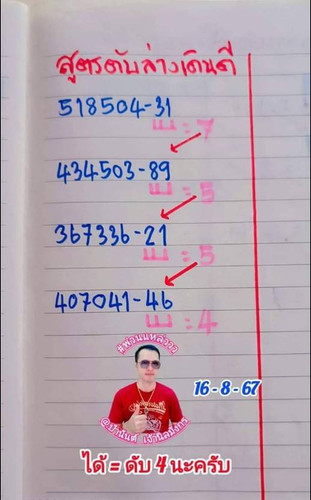 สูตรดับล่างเดินดี
518504-31
= 7
434503-89
= 5
367336-21
= 5
407041-46
= 4
16-8-67
ได้ = ดับ 4 นะครับ